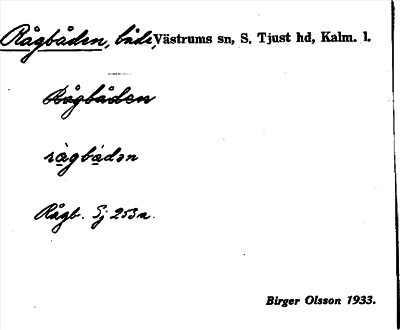 Rågbåden, både, Västrums sn, S. Tjust hd, Kalm. l.
Rågbåden
rågbådən
Rågb. Sj 253 a.
Birger Olsson 1933.